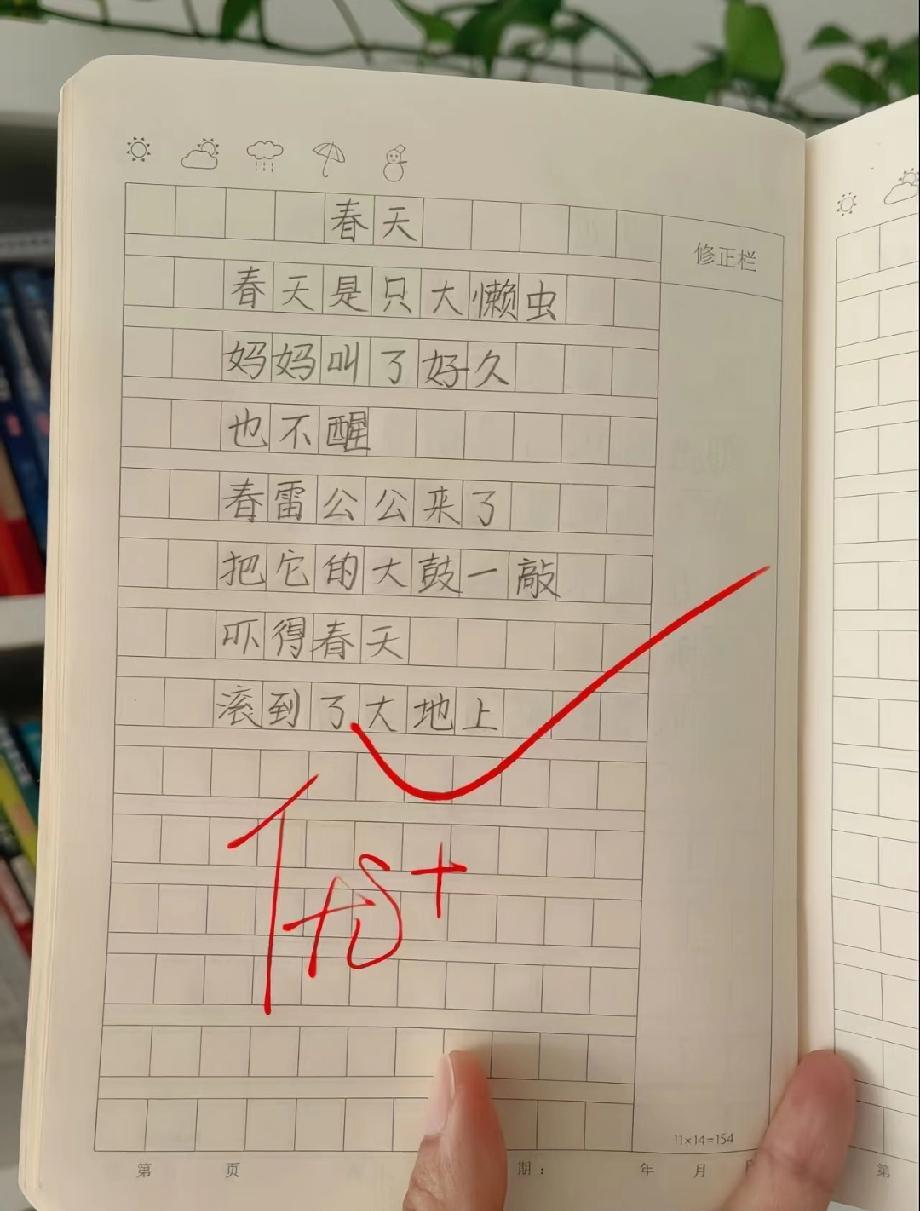 春天
修正栏
春天是只大懒虫
妈妈叫了好久
也不醒
春雷公公来了
把它的大鼓一敲
吓得春天
滚到了大地上
优+
11×14=154
第 页 期： 年 月
第